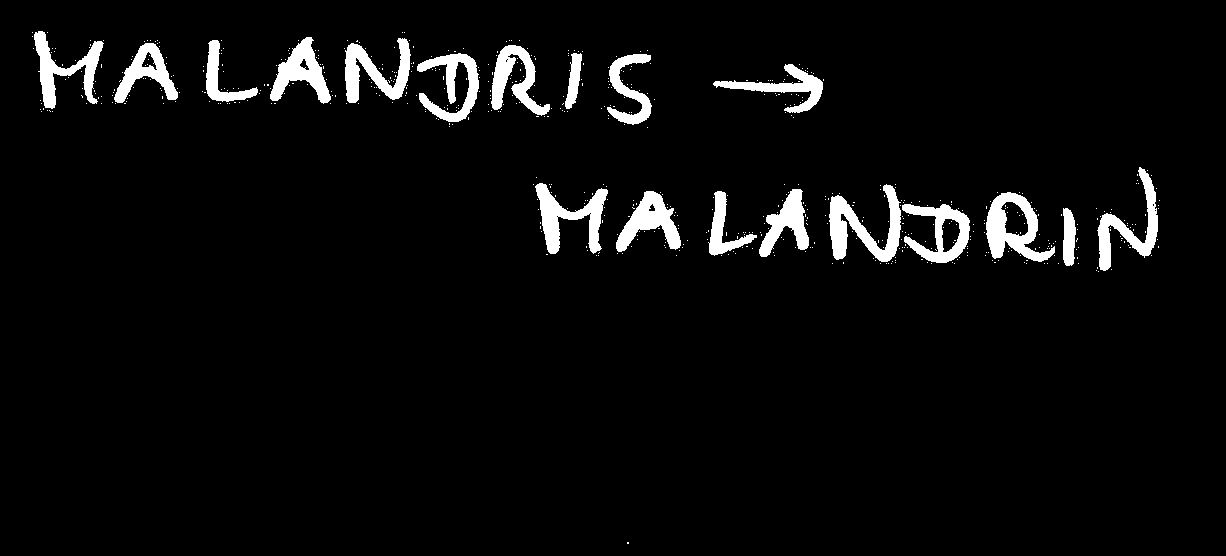 MALANDRIS →
MALANDRIN